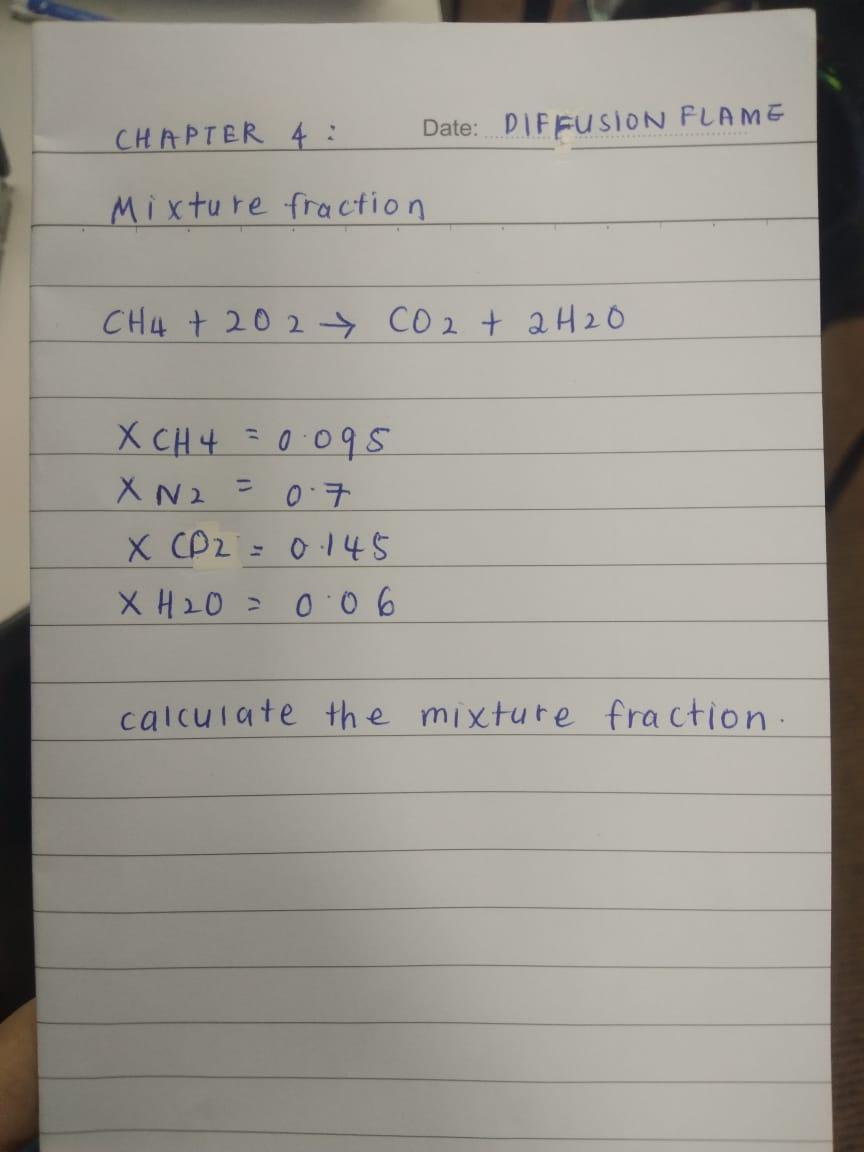 CHAPTER 4 : Date: DIFFUSION FLAME
Mixture fraction
CH4 + 2O2 → CO2 + 2H2O
X CH4 = 0.095
X N2 = 0.7
X CO2 = 0.145
X H2O = 0.06
calculate the mixture fraction.